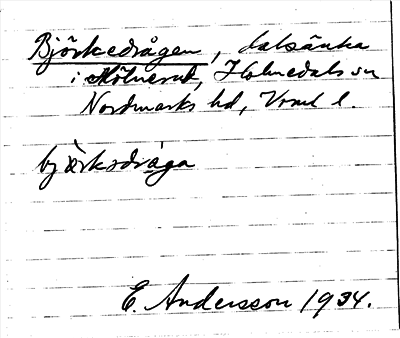 Björkedrågen, dalsänka
i Mölnerud, Holmedals sn
Nordmarks hd, Vrml l.
björksdråga
E. Andersson 1934.